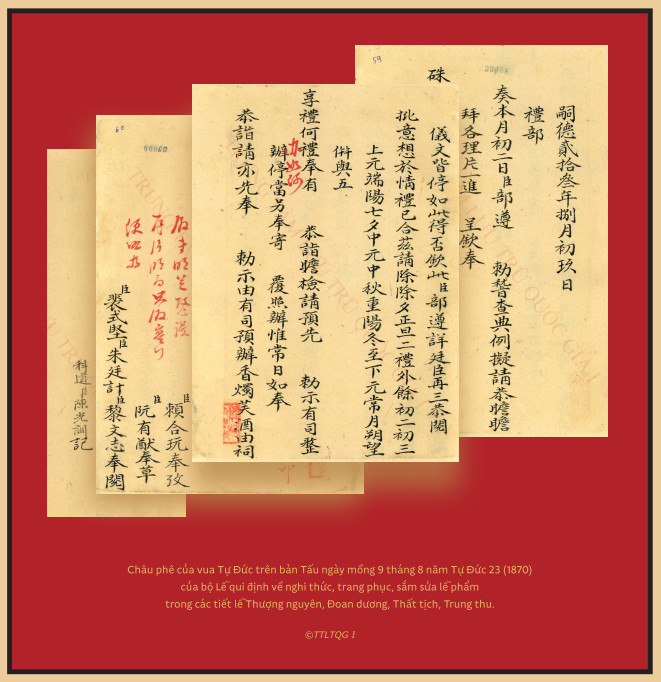 嗣德貳拾叁年捌月初玖日
禮部
奏本月初二日臣部遵 勅謷查典例擬請恭瞻瞻
拜各理片一進 呈欽奉
硃
儀文皆停如此得否欽此臣部遵詳廷臣再三恭閱
批意想於情禮已合茲請除除夕正旦二禮外餘初二初三
上元端陽七夕中元中秋重陽冬至下元常月朔望
併與五
享禮何禮奉有 恭詣瞻檢請預先 勅示有司整
辦停當另奉寄 覆照辦惟常日如奉
恭詣請亦先奉 勅示由有司預辦香燭芙酒由祠
臣賴合玩奉攷
臣阮有猷奉草
臣裴式堅臣朱廷計臣黎文志奉閱
科道臣陳光訓記
59
60
Châu phê của vua Tự Đức trên bản Tấu ngày mồng 9 tháng 8 năm Tự Đức 23 (1870)
của bộ Lễ qui định về nghi thức, trang phục, sắm sửa lễ phẩm
trong các tiết lễ Thượng nguyên, Đoan dương, Thất tịch, Trung thu.
©TTLTQG I